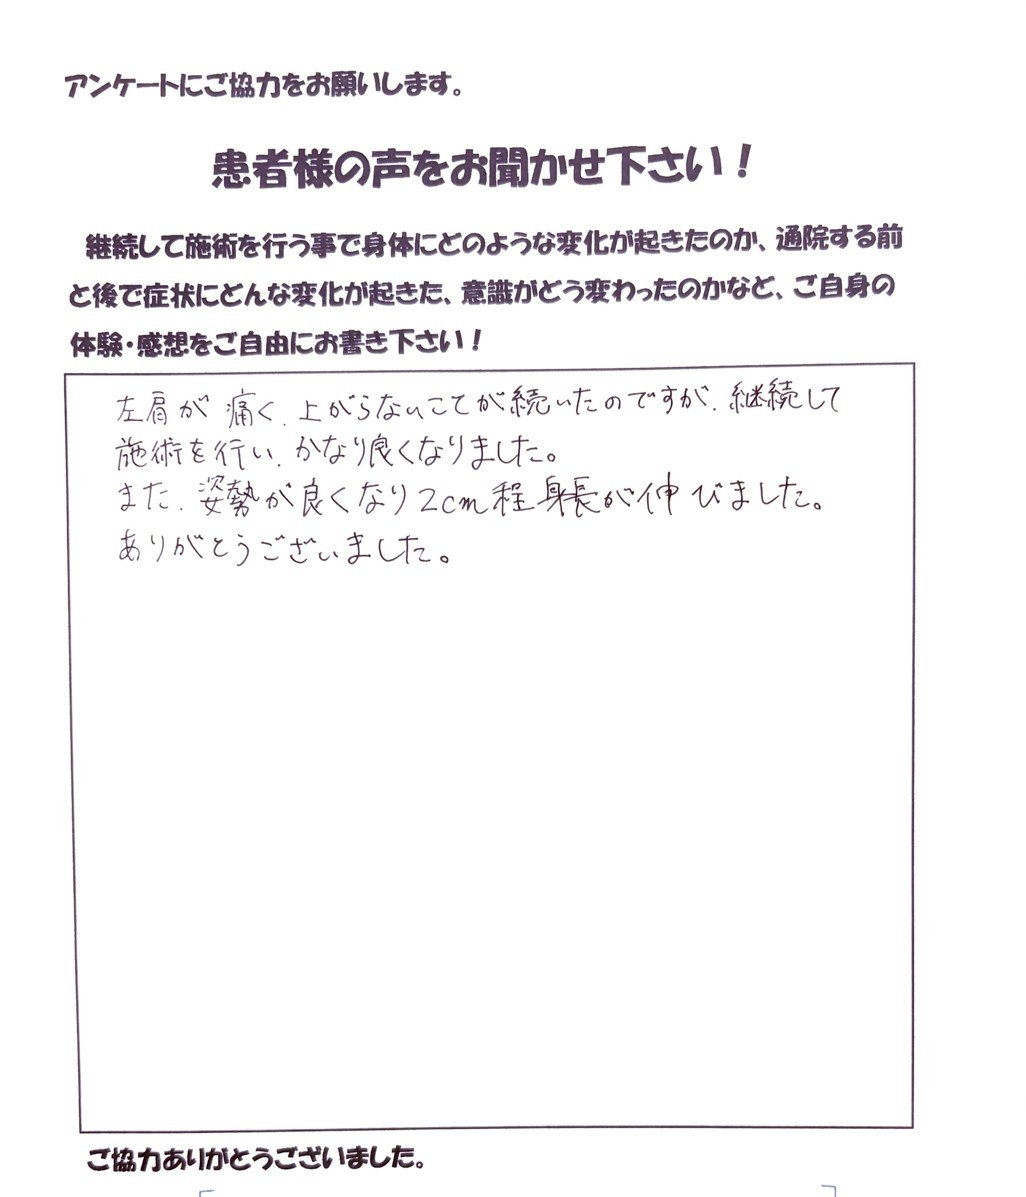 アンケートにご協力をお願いします。
患者様の声をお聞かせ下さい！
継続して施術を行う事で身体にどのような変化が起きたのか、通院する前
と後で症状にどんな変化が起きた、意識がどう変わったのかなど、ご自身の
体験・感想をご自由にお書き下さい！
左肩が痛く、上がらないことが続いたのですが、継続して
施術を行い、かなり良くなりました。
また、姿勢が良くなり2cm程身長が伸びました。
ありがとうございました。
ご協力ありがとうございました。